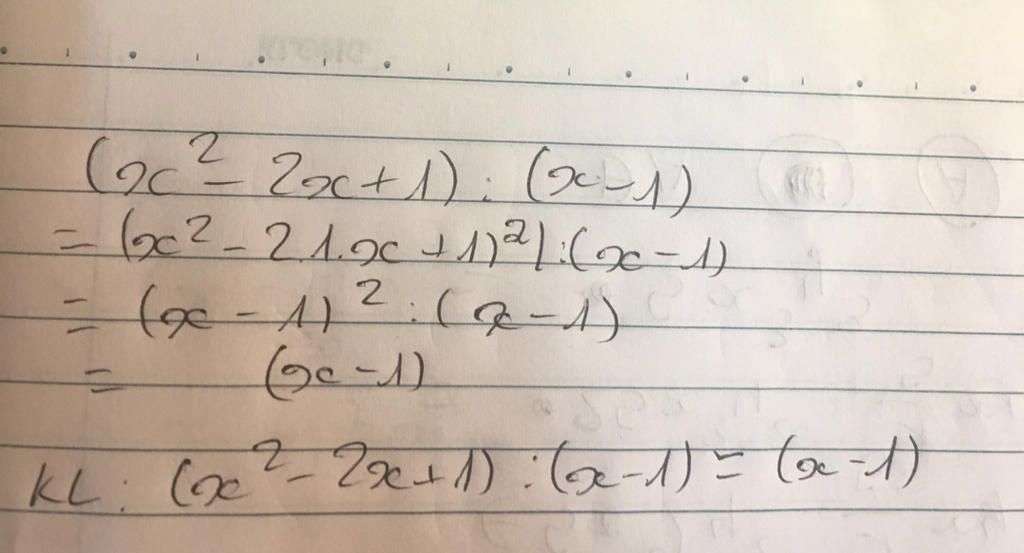 (x² - 2x + 1) : (x - 1)
= (x² - 2.1.x + 1)²) : (x - 1)
= (x - 1)² : (x - 1)
= (x - 1)
KL : (x² - 2x + 1) : (x - 1) = (x - 1)